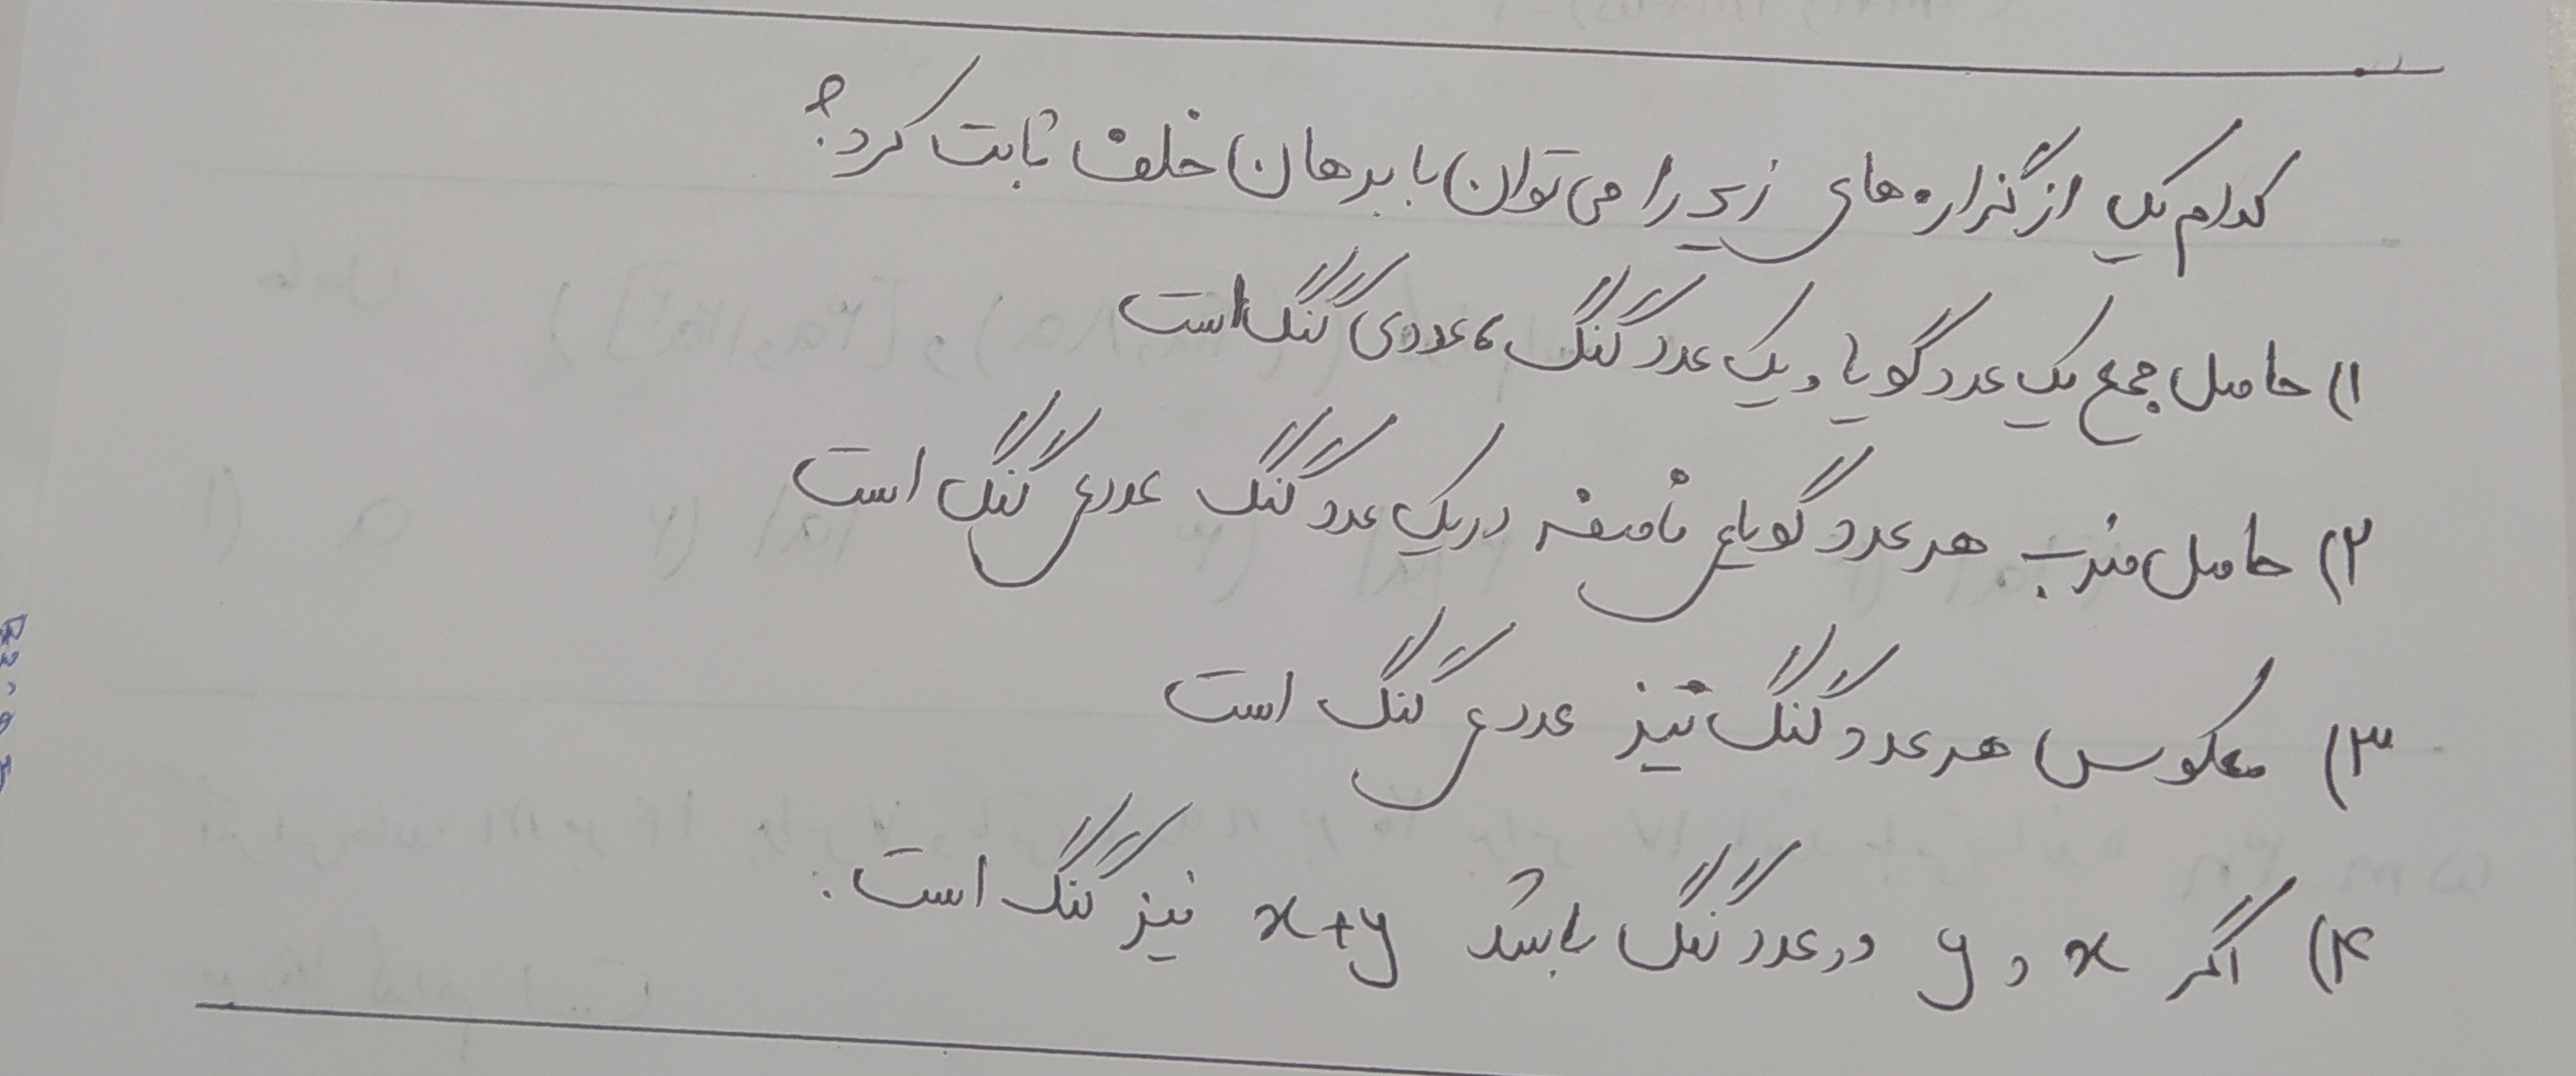 کدام یک از گزاره های زیر را می توان با برهان خلف ثابت کرد؟
۱) حاصل جمع یک عدد گویا و یک عدد گنگ، عددی گنگ است
۲) حاصل ضرب هر عدد گویای ناصفر در یک عدد گنگ عددی گنگ است
۳) معکوس هر عدد گنگ نیز عددی گنگ است
۴) اگر x و y دو عدد گنگ باشد x+y نیز گنگ است.